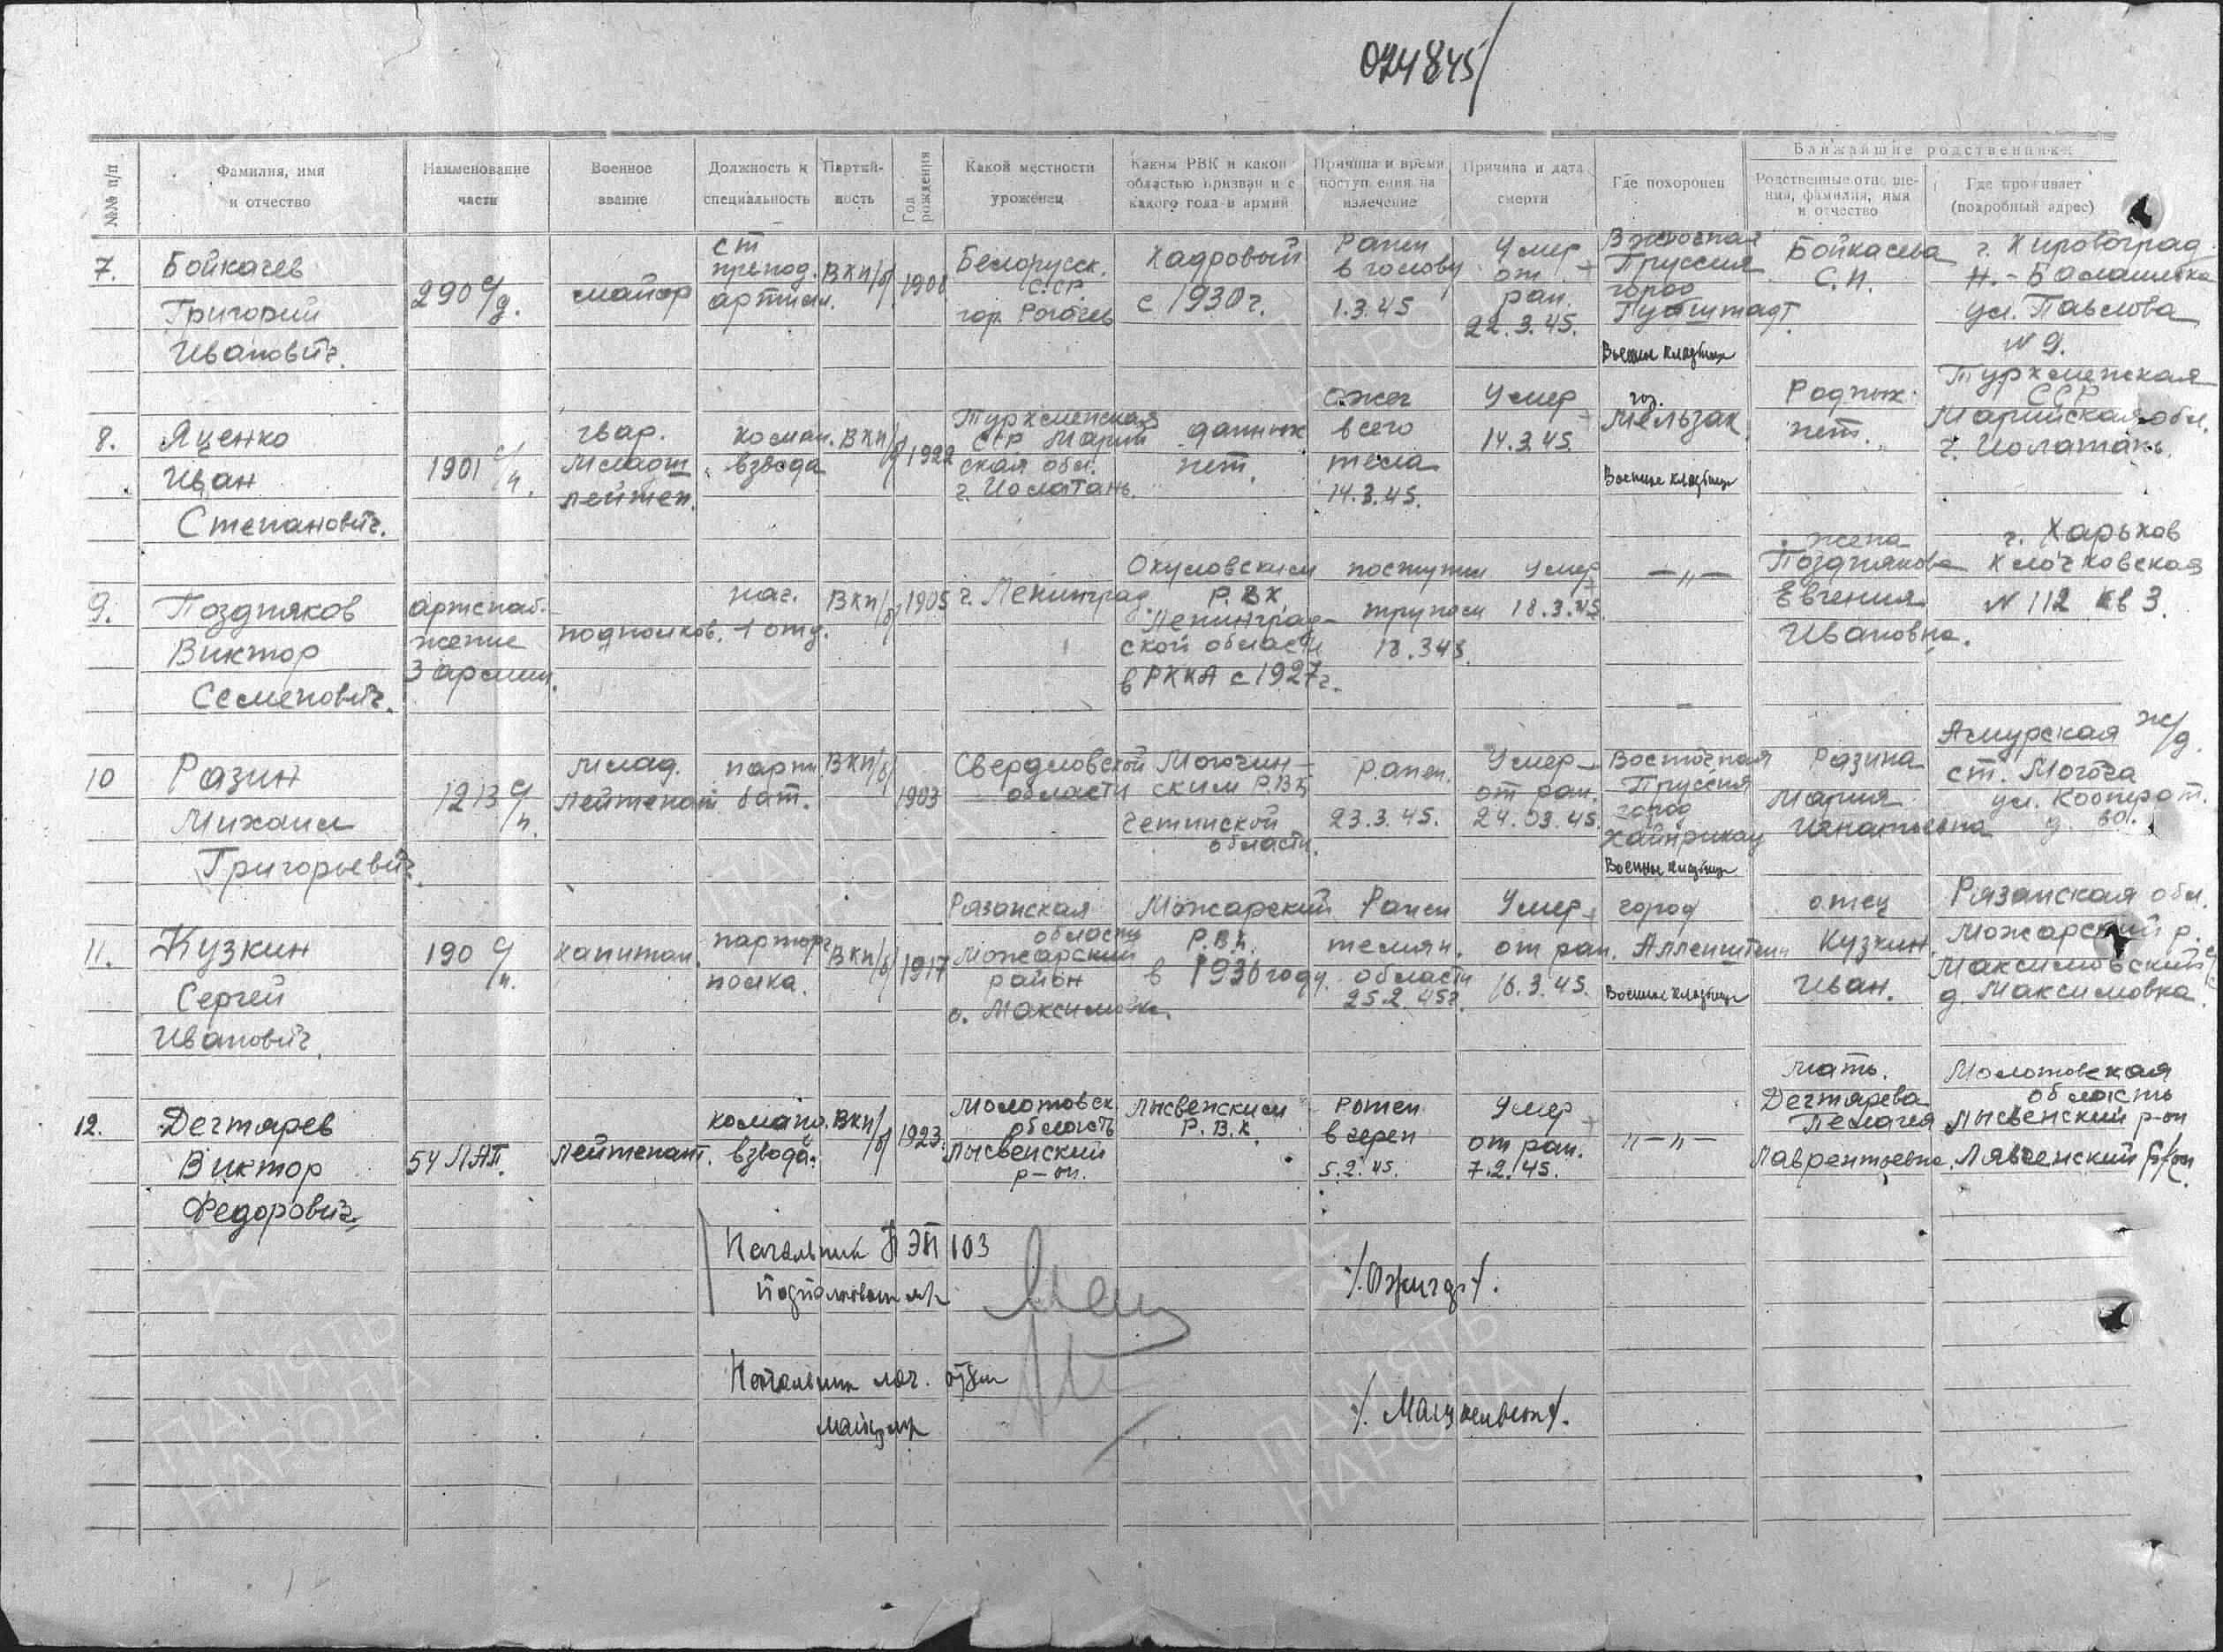 074845/
№№ п/п
Фамилия, имя и отчество
Наименование части
Военное звание
Должность и специальность
Партийность
Год рождения
Какой местности уроженец
Каким РВК и какой областью призван и с какого года в армии
Причина и время поступления на излечение
Причина и дата смерти
Где похоронен
Ближайшие родственники
Родственные отношения, фамилия, имя и отчество
Где проживает (подробный адрес)
7. Бойкачев Григорий Иванович.
290 с/д.
майор
ст препод. артил.
ВКП/б/
1908
Белорусск. ССР гор. Рогачев
Кадровый с 1930 г.
Ранен в голову 1.3.45
Умер от ран. 22.3.45.
Восточная Пруссия город
Военное кладбище
Бойкачева С.И.
г. Кировоград Н.-Балашовка ул. Павлова № 9.
8. Яценко Иван Степанович.
1901 с/п.
гвар. Младш. лейтен.
коман. взвода
ВКП/б/
1922
Туркменская ССР Марийская обл. г. Иолатань.
данных нет.
ожег всего тела 14.3.45.
Умер 14.3.45.
гор. Мельзак.
Военное кладбище
Родных нет.
Туркменская ССР Марийская обл. г. Иолатань.
9. Поздняков Виктор Семенович.
артснабжение 3 армии.
подполков.
нач. 1 отд.
ВКП/б/
1905
г. Ленинград
Окуловским Р.ВК Ленинградской области в РККА с 1927 г.
поступил трупом 18.3.45.
Умер 18.3.45.
—„—
жена Позднякова Евгения Ивановна.
г. Харьков Клочковская № 112 кв 3.
10 Разин Михаил Григорьевич.
1213 с/п.
Млад. Лейтенант
парт. бат.
ВКП/б/
1903
Свердловской области
Могочинским Р.ВК Четинской области.
Ранен. 23.3.45.
Умер от ран. 24.03.45.
Восточная Пруссия город Хайнрикау
Военное кладбище
Разина Мария Игнатьевна
Амурская ж/д. ст. Могоча ул. Кооперат. д. 30.
11. Кузкин Сергей Иванович.
190 с/п.
капитан.
парторг полка.
ВКП/б/
1917
Рязанская область Можарский район о. Максимовка.
Можарский Р.ВК. в 1936 году.
Ранен темян. области 25.2.45 г.
Умер от ран. 16.3.45.
город Алленштейн
Военное кладбище
отец Кузкин Иван.
Рязанская обл. Можарский р. Максимовский с/с д. Максимовка.
12. Дегтярев Виктор Федорович.
54 ЛАП.
Лейтенант.
команд. взвода.
ВКП/б/
1923.
Молотовск. область Лысвенский р-он.
Лысвенским Р.В.К.
Ранен в череп 5.2.45.
Умер от ран. 7.2.45.
„—„—
мать. Дегтярева Пелагея Лаврентьевна.
Молотовская область Лысвенский р-он
Начальник ПЭП 103
подполковник м/с
Начальник леч. отдел
майор м/с
ПАМЯТЬ НАРОДА